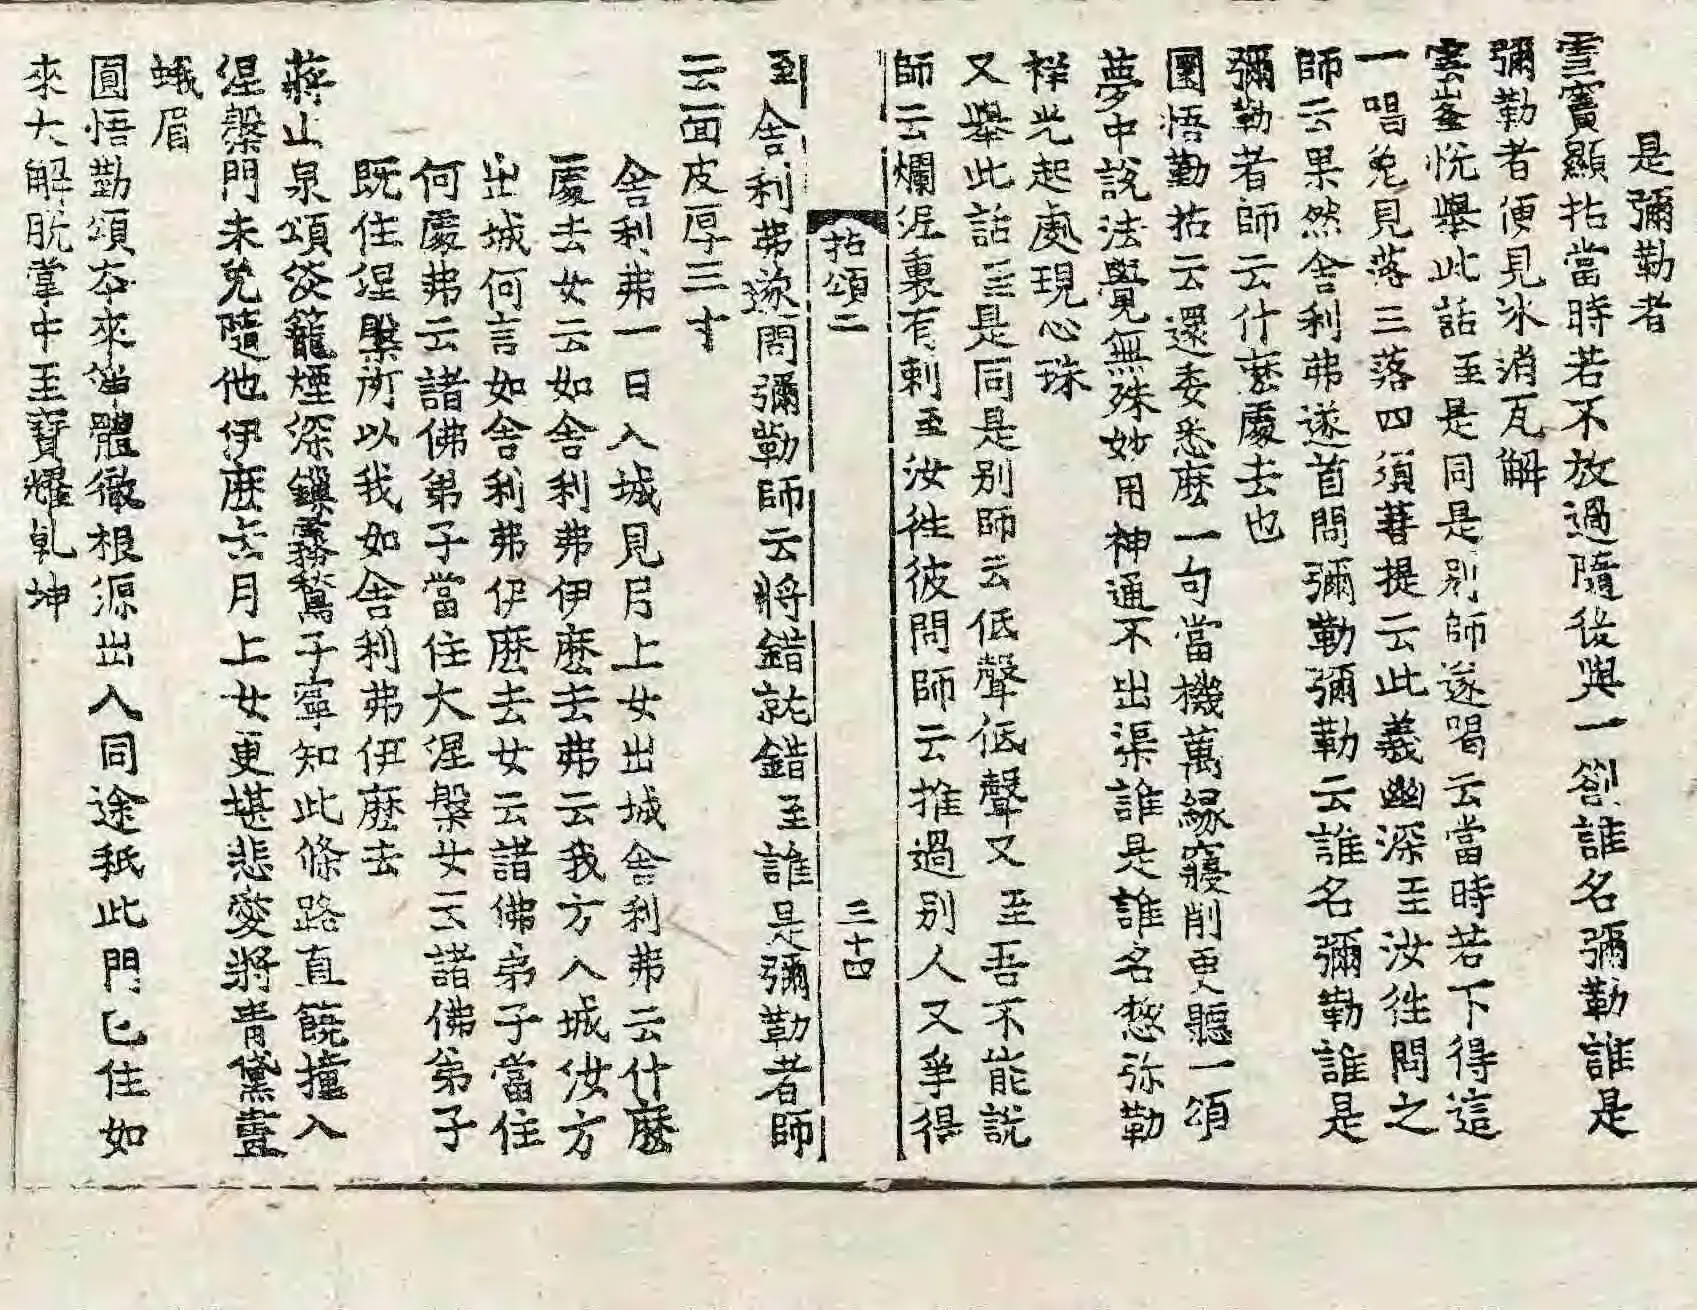 是彌勒者
雪竇顯拈當時若不放過隨後與一劄誰名彌勒誰是
彌勒者便見氷消瓦解
雲峯悅舉此話至是同是别師遂喝云當時若下得這
一喝免見落三落四須菩提云此義幽深至汝徃問之
師云果然舍利弗遂首問彌勒彌勒云誰名彌勒誰是
彌勒者師云什麽處去也
圜悟勤拈云還委悉麽一句當機萬緣寢削更聽一頌
夢中說法覺無殊妙用神通不出渠誰是誰名愁弥勒
祥光起處現心珠
又舉此話至是同是别師云低聲低聲又至吾不能說
師云爛泥裏有刺至汝徃彼問師云推過别人又爭得
拈頌二
三十四
到舍利弗遂問彌勒師云將錯就錯至誰是彌勒者師
云面皮厚三寸
舍利弗一日入城見月上女出城舍利弗云什麽
處去女云如舍利弗伊麽去弗云我方入城汝方
出城何言如舍利弗伊麽去女云諸佛弟子當住
何處弗云諸佛弟子當住大涅槃女云諸佛弟子
既住涅槃所以我如舍利弗伊麽去
蔣山泉頌茭籠煙深鎻霧鶖子寧知此條路直饒撞入
涅槃門未免隨他伊麽去月上女更堪悲愛將青黛畫
蛾眉
圓悟勤頌本來當體徹根源出入同途秖此門已住如
來大解脫掌中至寶耀乾坤